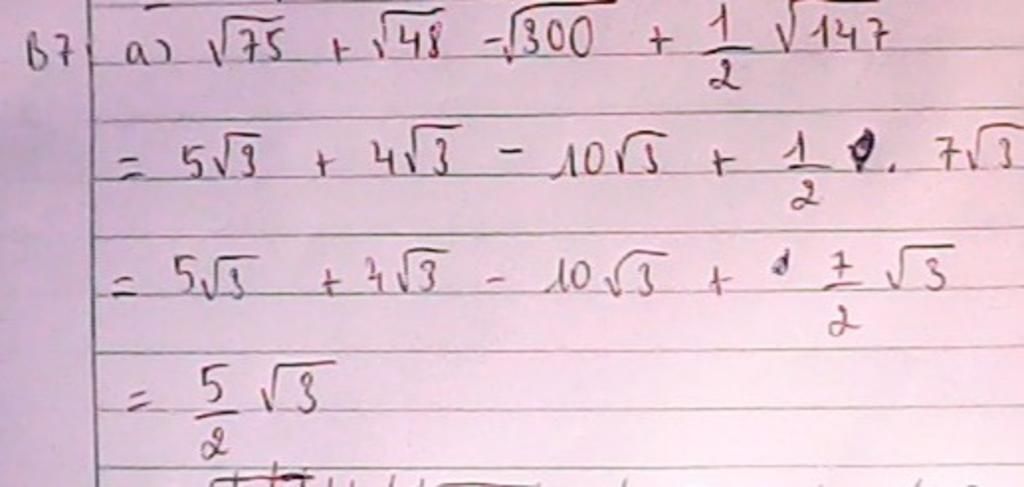 B7 a) √75 + √48 -√300 + 1/2 √147
= 5√3 + 4√3 - 10√3 + 1/2 . 7√3
= 5√3 + 4√3 - 10√3 + 7/2 √3
= 5/2 √3